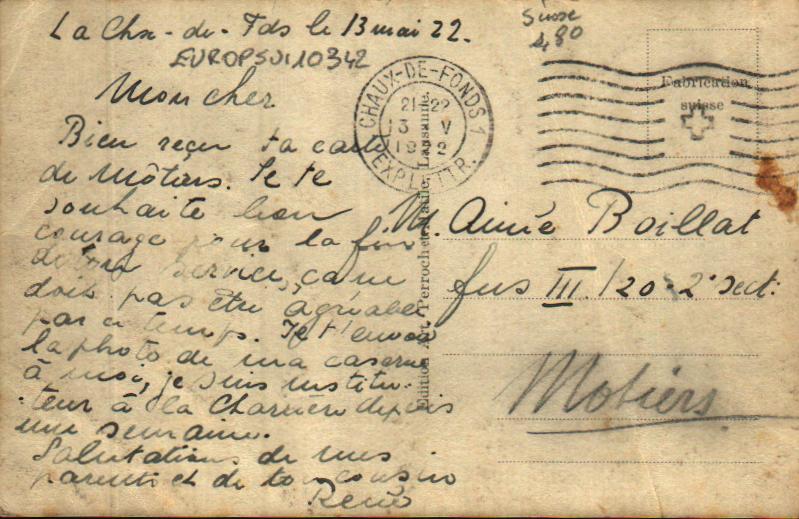 La Chx-de-Fds le 13 mai 22.
EUROPSUI10342
Suisse
4,80
Mon cher
Bien reçu ta carte
de Môtiers. Je te
souhaite bon
courage pour la fin
de ton service, ça ne
doit pas être agréable
par ce temps. Je t'envoie
la photo de ma caserne
à moi, je suis institu-
teur à la Charrière depuis
une semaine.
Salutations de mes
parents et de ton cousin
René
CHAUX-DE-FONDS 1
21-22
13 V
EXP. LETTR.
Fabrication
suisse
Edition Art. Perrochet-Matile, Lausanne
M. Aimé Boillat
fus III/20 - 2e sect.
Motiers